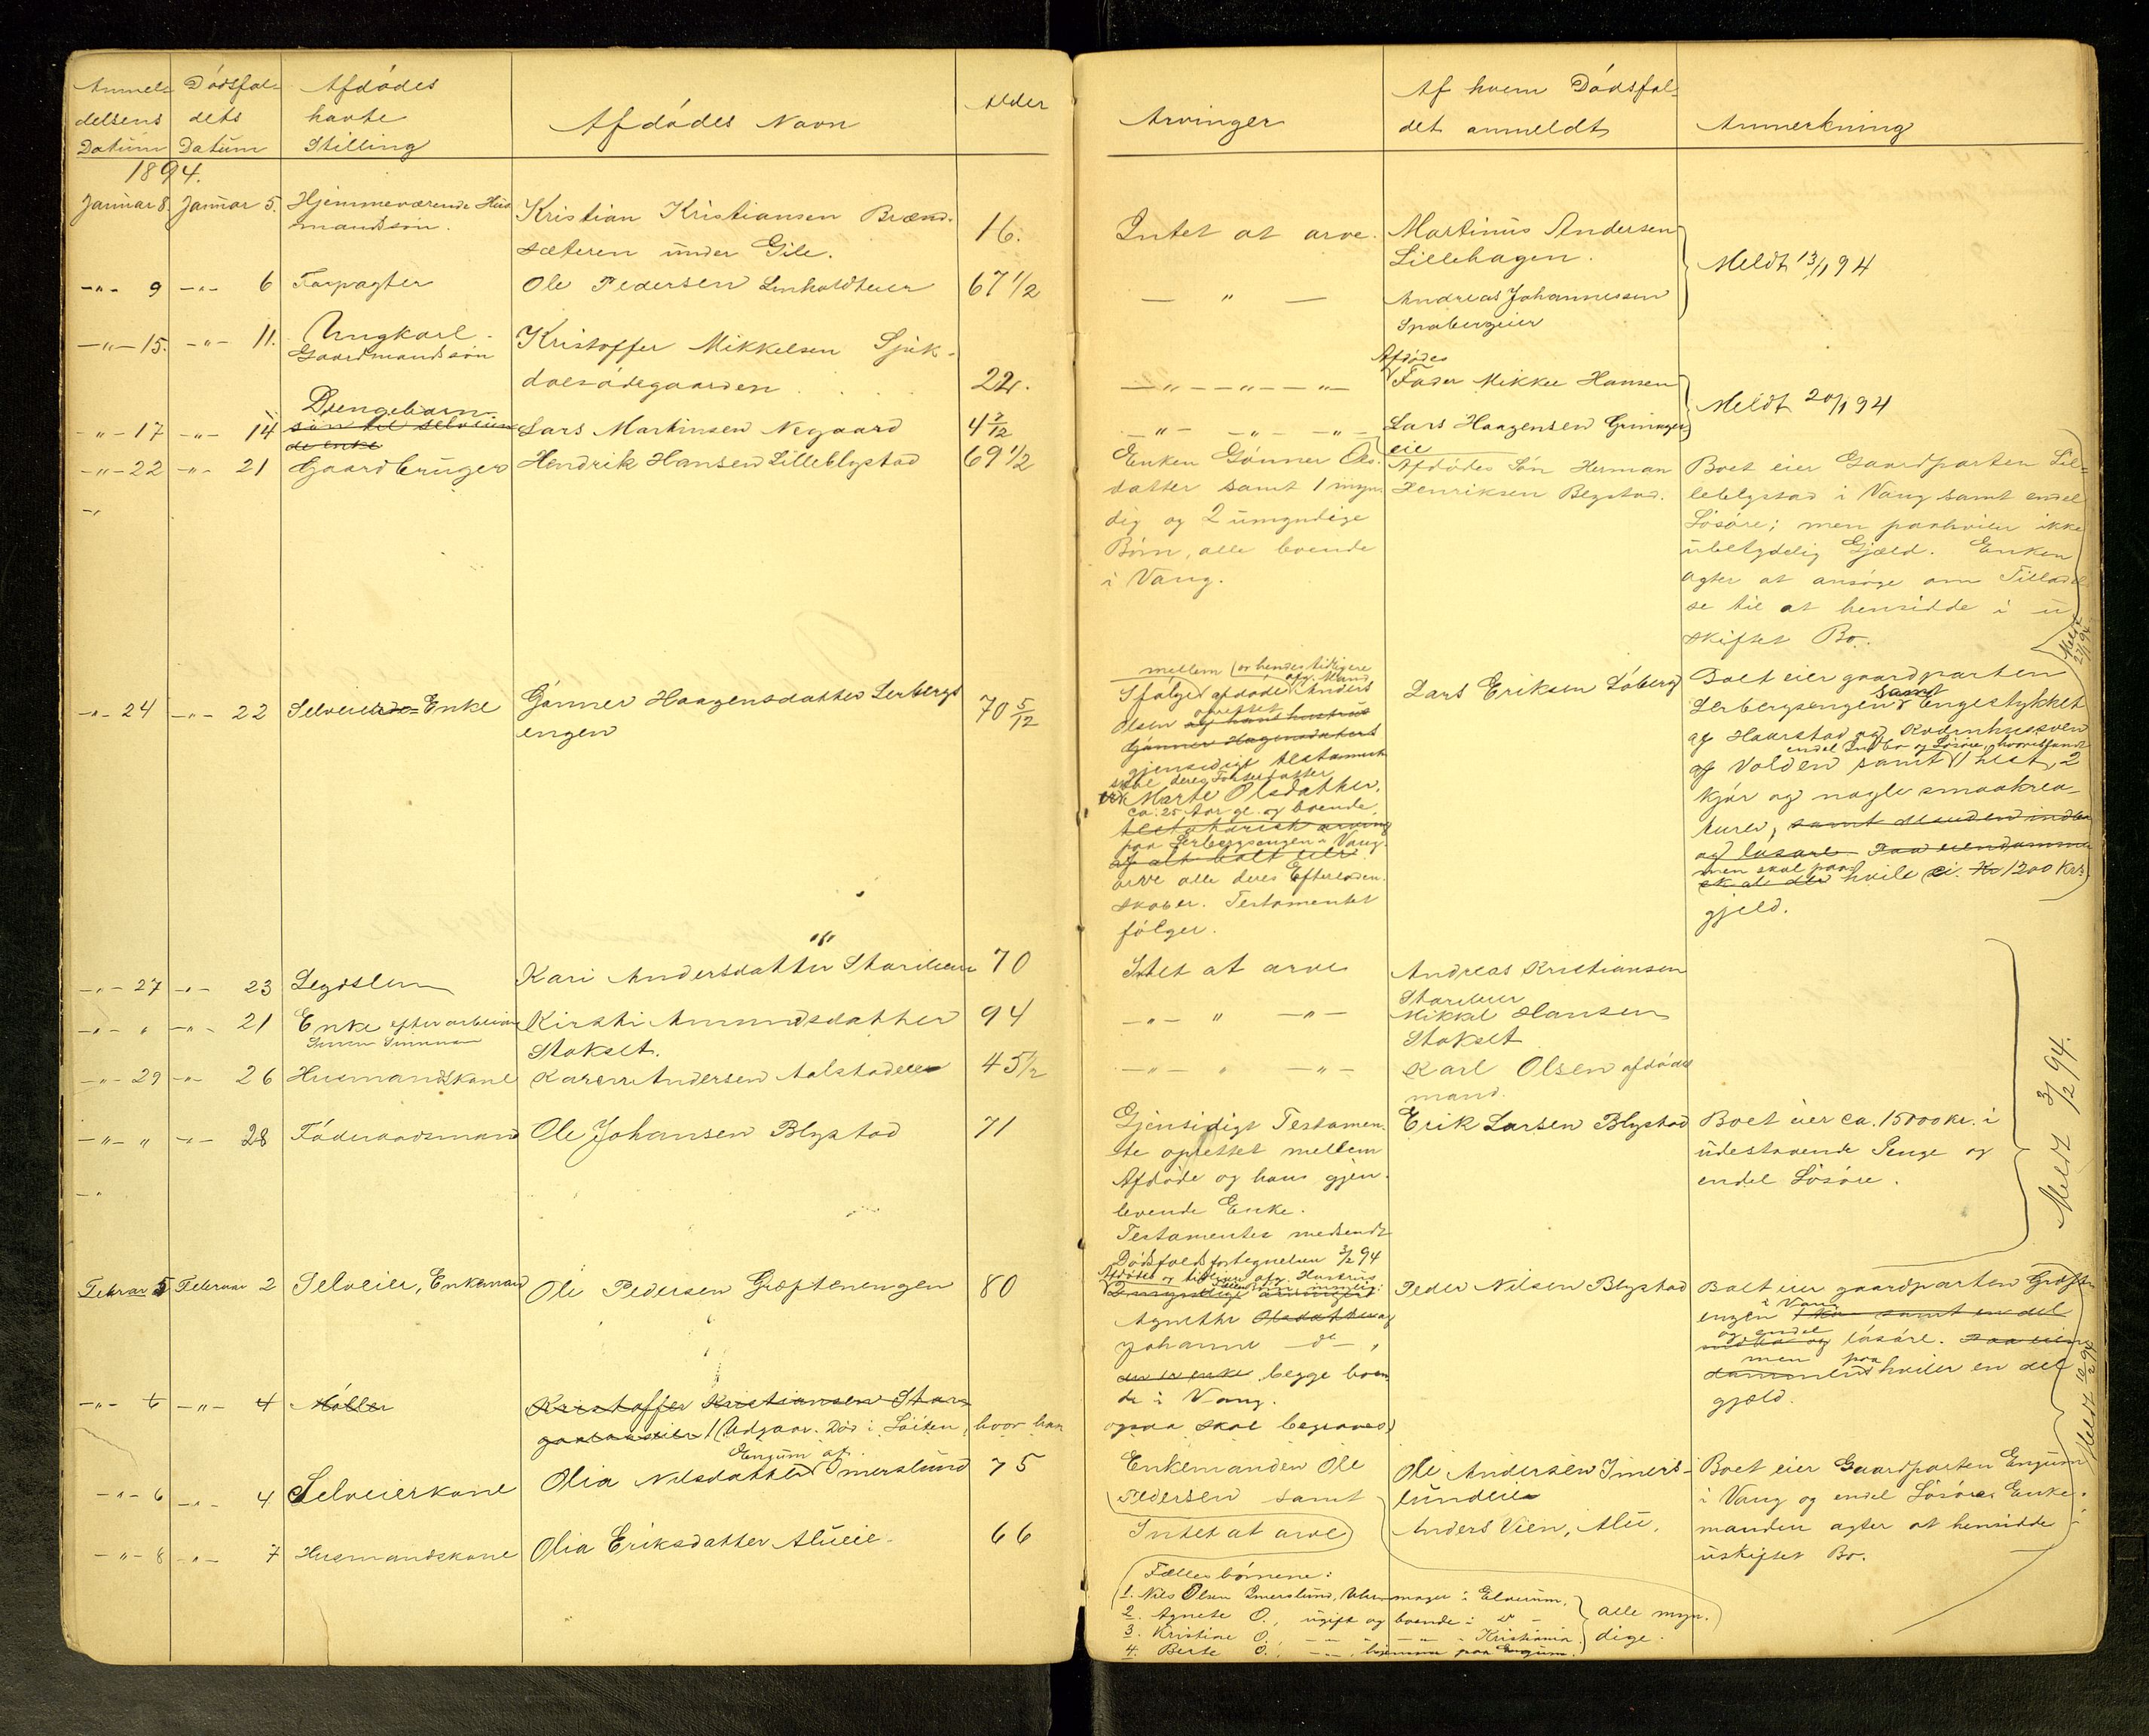 Anmel- Dødsfal- Afdødes
delsens dets havte Afdødes Navn Alder
Datum Datum Stilling
1894.
Januar 8. Januar 5. Hjemmeværende Hus- Kristian Kristiansen Brænd-
mandssøn. sæteren under Gile. 16.
-"- 9 -"- 6 Forpagter Ole Pedersen 67 1/2
-"- 15. -"- 11. Ungkarl - Kristoffer Mikkelsen Sjuk-
Gaardmandssøn dalsødegaarden 22.
Drengebarn
-"- 17 -"- 14 søn til selveien- Lars Martinsen Negaard 4 7/12
de enke
-"- 22 -"- 21 Gaardbruger Hendrik Hansen Lilleblystad 69 1/2
-"- 24 -"- 22 Selveierde= Enke Gønner Haagensdatter Lerbergs 70 5/12
engen
-"- 27 -"- 23 Legdslem Kari Andersdatter 70
-"- " -"- 21 Enke efter Kirsti Amundsdatter 94
Stokset.
-"- 29 -"- 26 Husmandskone Karen Andersen 45 1/2
-"- " -"- 28 Føderaadsmand Ole Johansen Blystad 71
Februar 5 Februar 2 Selveier, Enkemand Ole Pedersen Grøftenengen 80
-"- 6 -"- 4 Møller Kristoffer Kristiansen
(Udgaar. Død i Løiten, hvor han
Engum af
-"- 6 -"- 4 Selveierkone Olia Nilsdatter Imerslund 75
-"- 8 -"- 7 Husmandskone Olia Eriksdatter Alueie. 66
Af hvem Dødsfal-
Arvinger det anmeldt Anmerkning
Intet at arve. Martinus Andersen
Lillehagen. Meldt 13/1 94
— " — Andreas Johannessen
Snabergeier
Afdødes
-"- -"- -"- Fader Mikkel Hansen
Meldt 20/1 94
-"- -"- -"- Lars Haagensen
eie
Enken Gønner Ols- Afdødes Søn Herman Boet eier Gaardparten Lil-
datter samt 1 myn- Henriksen Blystad. leblystad i Vang samt endel
dig og 2 umyndige Løsøre; men paahviler ikke
Børn, alle boende ubetydelig Gjæld. Enken
i Vang. agter at ansøge om Tilladel-
se til at hensidde i u-
skiftet Bo.
Meldt 27/1 94
mellem og hendes tidligere
afg. Mand
Ifølge afdøde Anders Lars Eriksen Løberg Boet eier gaardparten
Olsen oprettet og hans hustrue samt
Gønner Hagensdatters Lerbergsengen Engestykket
gjensidigt testament af Haarstad og
skal deres Fosterdatter endel Indbo og Løsøre, hvoriblandt
Marte Olsdatter, af Volden samt 1 hest, 2
ca. 25 Aar gl. og boende kjør og nogle smaakrea-
testatarisk arving turer, samt
paa Lerbergsengen i Vang og løsøre. Paa eiendommen
af alt boet eier men skal paa
arve alle deres Efterladen- hvile 1200 Kr.
skaber. Testamentet gjeld.
følger.
Intet at arve Andreas Kristiansen
-"- " -"- Mikkel Hansen
Stokset
-"- " -"- Karl Olsen afdødes
mand.
Meldt 3/2 94.
Gjensidigt Testamen- Erik Larsen Blystad Boet eier ca. 15000 kr. i
te oprettet mellem udestaaende Penge og
Afdøde og hans gjen- endel Løsøre.
levende Enke.
Testamentet medsendt
Dødsfaldsfortegnelsen 3/2 94
Afdødes og tidligere afg. Hustrus
Peder Nilsen Blystad Boet eier gaardparten Grøften
Agnethe Olsdatter og engen i Vang samt en del
Johanne — do — , og endel løsøre. Paa eien-
begge boen- men paa dommen hviler en del
de i Vang. gjæld.
ogsaa skal begraves)
Meldt 10/2 94
Enkemanden Ole Ole Andersen Imers- Boet eier Gaardparten Engum
Pedersen samt lundeie i Vang og endel Løsøre. Enke-
Intet at arve Anders Vien, Alu. manden agter at hensidde i
uskiftet Bo.
Fællesbørnene:
1. Nils Olsen Imerslund, Uhrmager i Elverum,
2. Agnete O., ugift og boende i do - alle myn-
3. Kristine O., -"- -"- - Kristiania. dige.
4. Berte O., -"- , hjemme paa Engum.